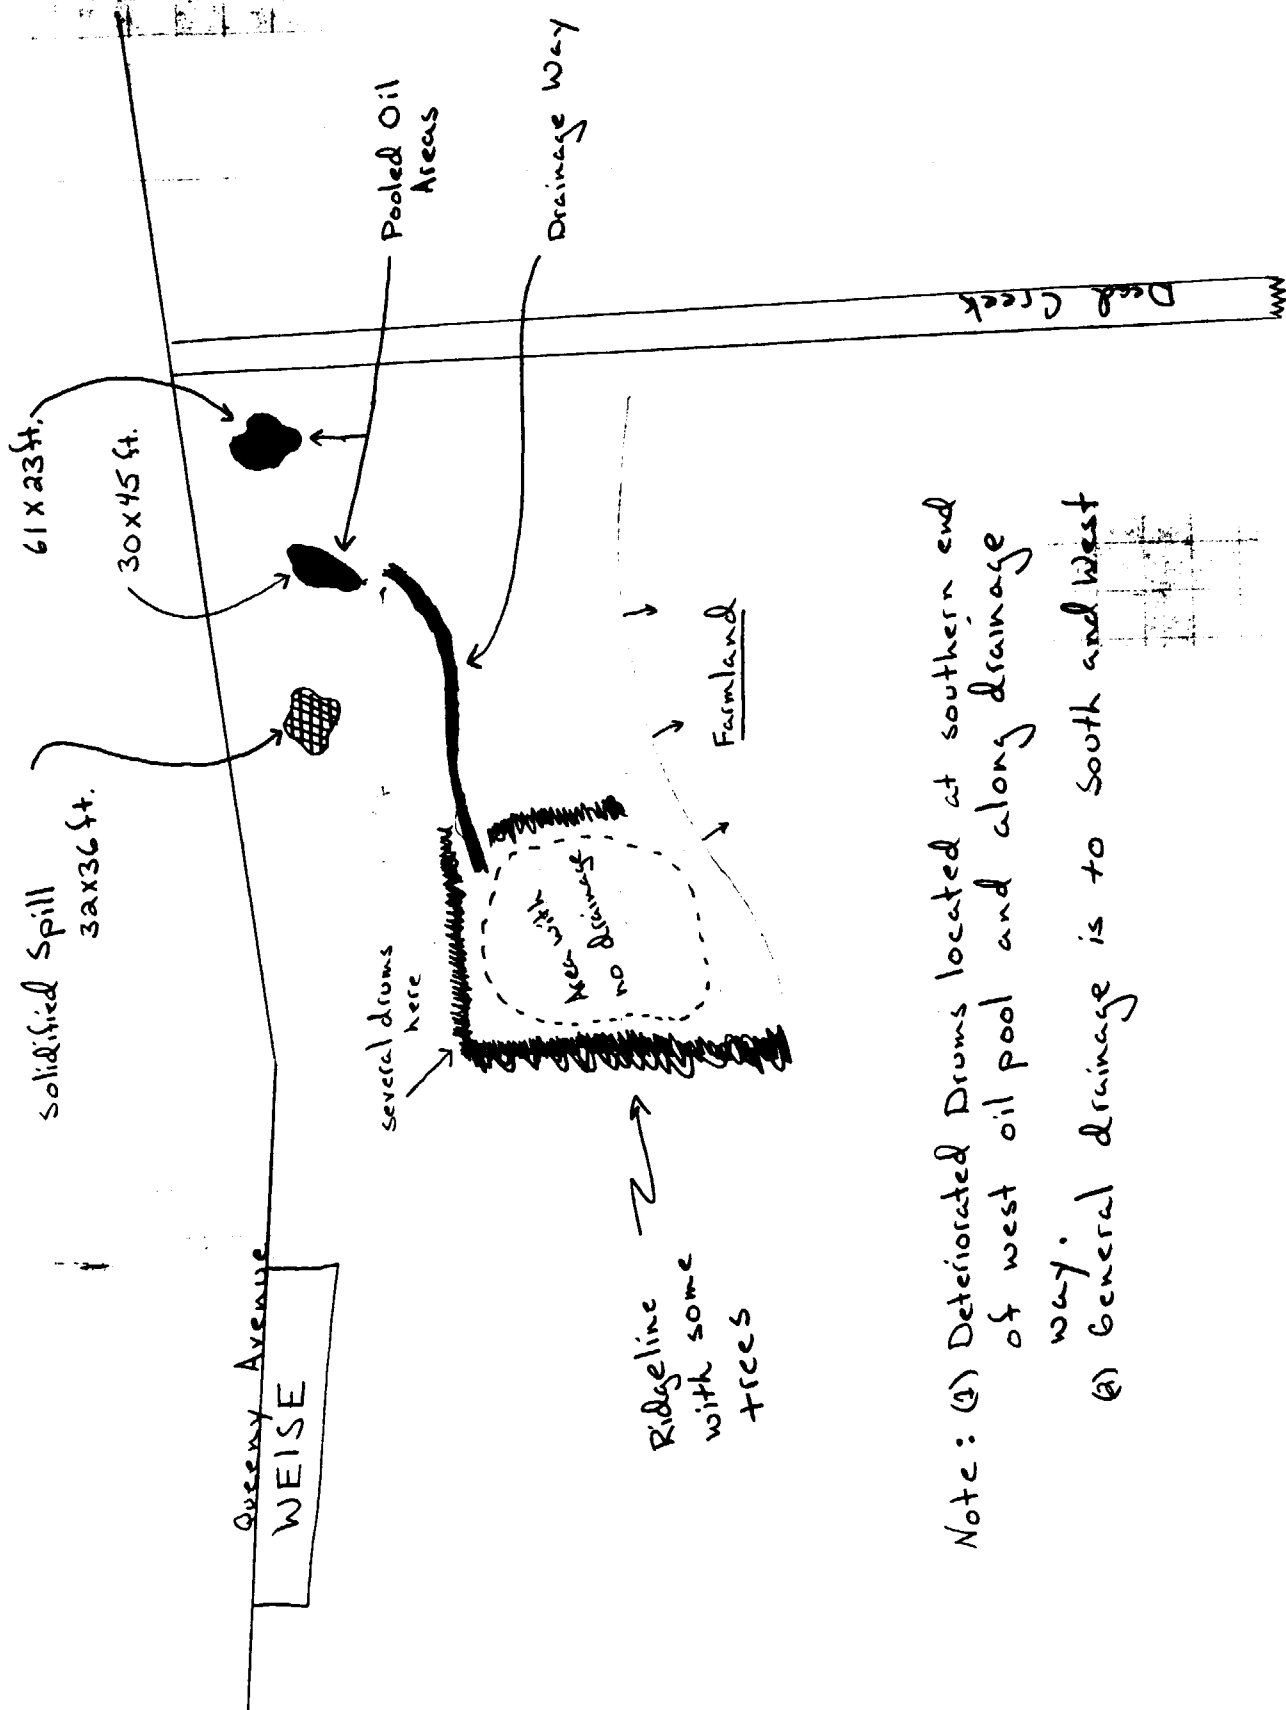 Solidified Spill
32x36 ft.
61x23 ft.
30x45 ft.
Pooled Oil
Areas
Drainage Way
Queeny Avenue
WEISE
several drums
here
Area with
no drainage
Farmland
Dead Creek
Ridgeline
with some
trees
Note: (1) Deteriorated Drums located at southern end
of west oil pool and along drainage
way.
(2) General drainage is to south and West